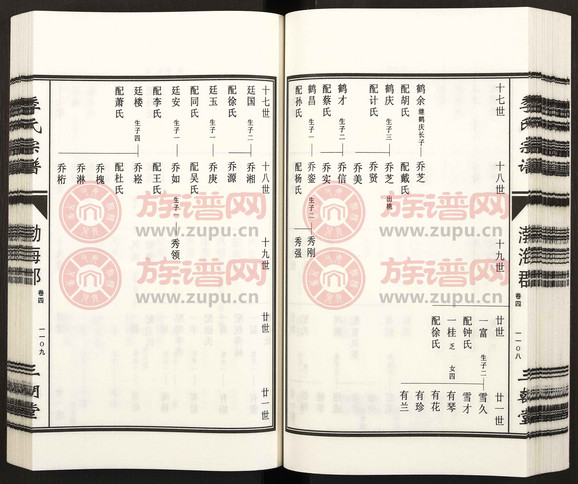 十七世
十八世
十九世
廿世
廿一世
鹤余 继鹤庆长子
乔芝
配胡氏
配戴氏
鹤庆 生子三
乔芝 出桃
配计氏
乔贤
乔美
鹤才 生子二
乔信
配蔡氏
乔实
鹤昌 生子一
乔銮 生子二
秀刚
配孙氏
配杨氏
秀强
一富 生子二
雪久
配钟氏
雪才
一桂 芝 女四
有琴
配徐氏
有花
有珍
有兰
渤海郡
卷四
一一〇八
三朝堂
十七世
十八世
十九世
廿世
廿一世
廷国 生子二
乔湘
配徐氏
乔源
廷玉 生子一
乔庚
配同氏
配吴氏
廷安 生子一
乔如 生子一
秀领
配李氏
配王氏
廷楼 生子四
乔崧
配萧氏
配杜氏
乔槐
乔淋
乔桁
季氏宗谱
渤海郡
卷四
一一〇九
三朝堂
族谱网
www.zupu.cn
族谱网
www.zupu.cn
族谱网
www.zupu.cn
族谱网
www.zupu.cn